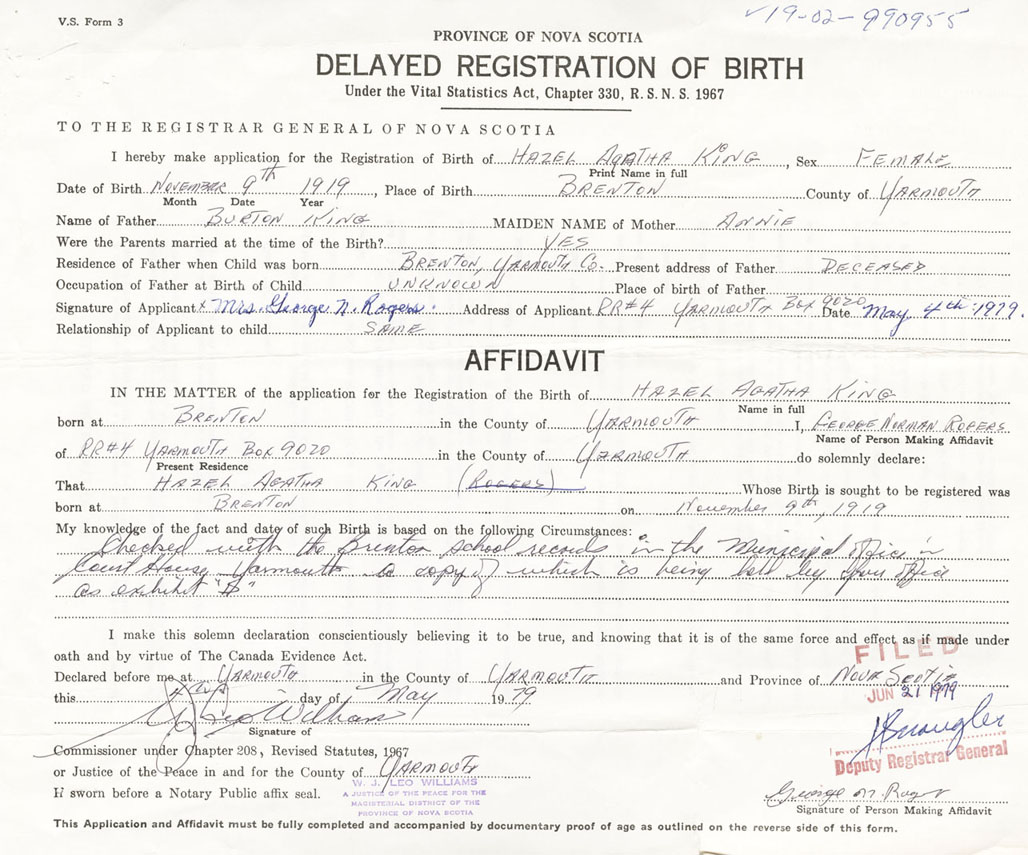 V.S. Form 3
19-02-990955
PROVINCE OF NOVA SCOTIA
DELAYED REGISTRATION OF BIRTH
Under the Vital Statistics Act, Chapter 330, R. S. N. S. 1967
TO THE REGISTRAR GENERAL OF NOVA SCOTIA
I hereby make application for the Registration of Birth of HAZEL AGATHA KING, Sex FEMALE
Print Name in full
Date of Birth NOVEMBER 9th 1919, Place of Birth BRENTON County of YARMOUTH
Month Date Year
Name of Father BURTON KING MAIDEN NAME of Mother ANNIE
Were the Parents married at the time of the Birth? YES
Residence of Father when Child was born BRENTON, YARMOUTH CO. Present address of Father DECEASED
Occupation of Father at Birth of Child UNKNOWN Place of birth of Father
Signature of Applicant x Mrs. George N. Rogers. Address of Applicant RR#4 YARMOUTH BOX 9020 Date May 4th 1979.
Relationship of Applicant to child SAME
AFFIDAVIT
IN THE MATTER of the application for the Registration of Birth of HAZEL AGATHA KING
Name in full
born at BRENTON in the County of YARMOUTH I, GEORGE NORMAN ROGERS
Name of Person Making Affidavit
of RR#4 YARMOUTH BOX 9020 in the County of YARMOUTH do solemnly declare:
Present Residence
That HAZEL AGATHA KING (ROGERS) Whose Birth is sought to be registered was
born at BRENTON on November 9th, 1919
My knowledge of the fact and date of such Birth is based on the following Circumstances:
Checked with the Brenton School records in the Municipal office in
Court House Yarmouth a copy of which is being held by your office
as exhibit
I make this solemn declaration conscientiously believing it to be true, and knowing that it is of the same force and effect as if made under
oath and by virtue of The Canada Evidence Act.
FILED
Declared before me at YARMOUTH in the County of YARMOUTH and Province of NOVA SCOTIA
JUN 21 1979
this 4th day of May 1979
Leo Williams
Signature of
Commissioner under Chapter 208, Revised Statutes, 1967
Deputy Registrar General
or Justice of the Peace in and for the County of YARMOUTH
W. J. LEO WILLIAMS
A JUSTICE OF THE PEACE FOR THE
MAGISTERIAL DISTRICT OF THE
PROVINCE OF NOVA SCOTIA
If sworn before a Notary Public affix seal.
George N. Rogers
Signature of Person Making Affidavit
This Application and Affidavit must be fully completed and accompanied by documentary proof of age as outlined on the reverse side of this form.